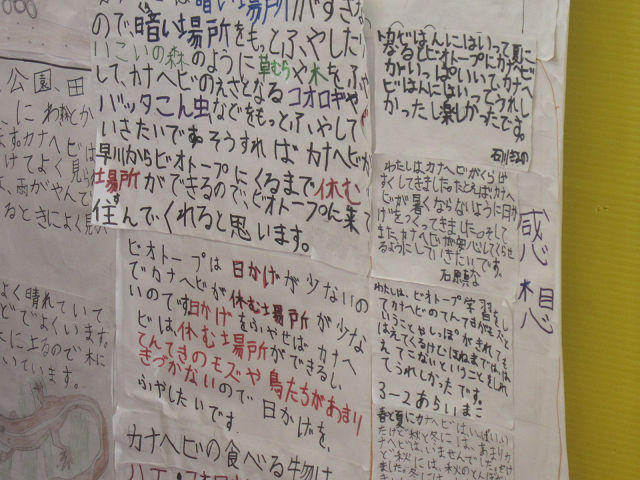 は暗い場所がすきな
ので、暗い場所をもっとふやしたり
いこいの森のように草むらや木をふや
して、カナヘビのえさとなるコオロギや
バッタこん虫などをもっとふやして
いきたいです。そうすれば カナヘビが
早川からビオトープにくるまで休む
場所ができるので、ビオトープに来て
住んでくれると思います。
ビオトープは 日かげが少ないの
でカナヘビが休む場所が少な
いのです。日かげをふやせば カナヘ
ビは、休む場所ができるし
てんてきのモズや鳥たちがあまり
きづかないので 日かげを、
ふやしたいです。
カナヘビの食べる物は
公園、田
よく晴れていて
どでよくいます。
に上るので木に
いています。
カビはんにはいって夏に
なるとビオトープにカナヘビ
がいっぱいいて、カナヘ
ビはんにはいってうれし
かったし楽しかったです。
わたしは、カナヘビがくらしや
すくしてきました。たとえばカナヘ
ビが暑くならないように日か
げをつくってきました。そして
また、カナヘビが安心してくらせ
るようにしていきたいです。
石原真な
わたしは、ビオトープ学習をし
てカナヘビのてんてきがモズと
いうことやしっぽがきれても
はえてくるけどほねまでは、は
えてこないということをしれ
てうれしかったです。
3-2あらいまこ
春と夏にカナヘビはいっぱいい
たけど秋と冬には、あまりカ
ナヘビは、いませんでした。だけ
ど秋には、秋のとんぼが
感想